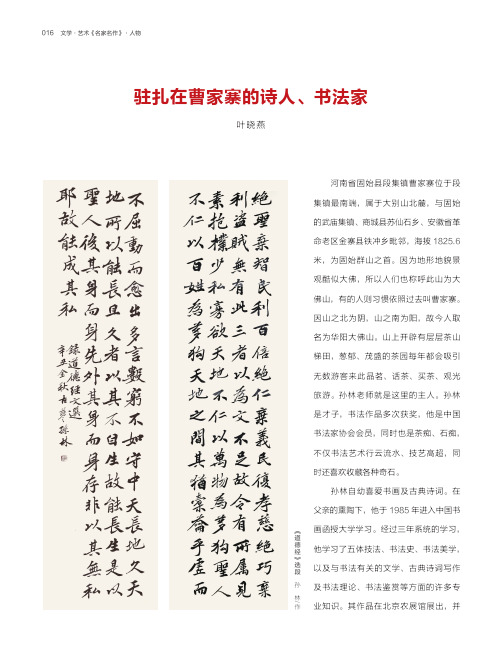 016 文学·艺术《名家名作》·人物
驻扎在曹家寨的诗人、书法家
叶晓燕
絕聖棄智民利百倍絕仁棄義民復孝慈絕巧棄
利盜賊無有此三者以為文不足故令有所屬見
素抱樸少私寡欲天地不仁以萬物為芻狗聖人
不仁以百姓為芻狗天地之間其猶橐籥乎虛而
不屈動而愈出多言數窮不如守中天長地久天
地所以能長且久者以其不自生故能長生是以
聖人後其身而身先外其身而身存非以其無私
耶故能成其私
錄道德經文選
辛丑金秋古蓼孫林
《道德经》选段 孙 林/作
河南省固始县段集镇曹家寨位于段
集镇最南端，属于大别山北麓，与固始
的武庙集镇、商城县苏仙石乡、安徽省革
命老区金寨县铁冲乡毗邻，海拔 1825.6
米，为固始群山之首。因为地形地貌景
观酷似大佛，所以人们也称呼此山为大
佛山，有的人则习惯依照过去叫曹家寨。
因山之北为阴、山之南为阳，故今人取
名为华阳大佛山，山上开辟有层层茶山
梯田，葱郁、茂盛的茶园每年都会吸引
无数游客来此品茗、话茶、买茶、观光
旅游。孙林老师就是这里的主人。孙林
是才子，书法作品多次获奖，他是中国
书法家协会会员，同时也是茶痴、石痴，
不仅书法艺术行云流水、技艺高超，同
时还喜欢收藏各种奇石。
孙林自幼喜爱书画及古典诗词。在
父亲的熏陶下，他于 1985 年进入中国书
画函授大学学习。经过三年系统的学习，
他学习了五体技法、书法史、书法美学，
以及与书法有关的文学、古典诗词写作
及书法理论、书法鉴赏等方面的许多专
业知识。其作品在北京农展馆展出，并